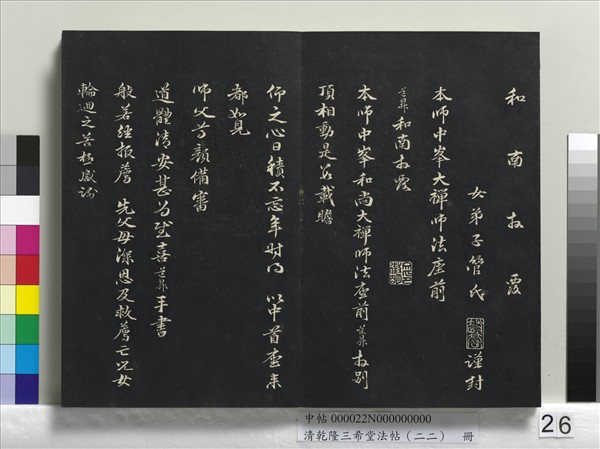 和南拜覆
女弟子管氏 謹封
本師中峯大禪師法座前
道昇和南拜覆
本師中峯和尚大禪師法座前道昇拜別
頂相動是若載瞻
仰之心日積不忘年時得 以中首座來
都如見
師父尊顏備審
道體清安甚為望喜道昇手書
般若經拔薦 先父母深恩及救薦亡兒女
輪迴之苦極感謝
中帖 000022N000000000
清乾隆三希堂法帖(二二) 冊
26